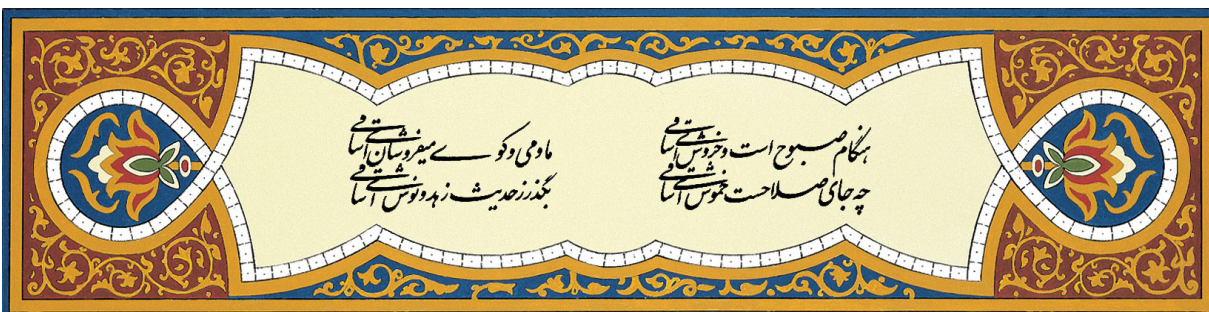 هنگام صبوح است و خروش است ای ساقی
ما و می و کوی میفروشان است ای ساقی
چه جای صلاحست خموش است ای ساقی
بگذر ز حدیث زهد و نوش است ای ساقی